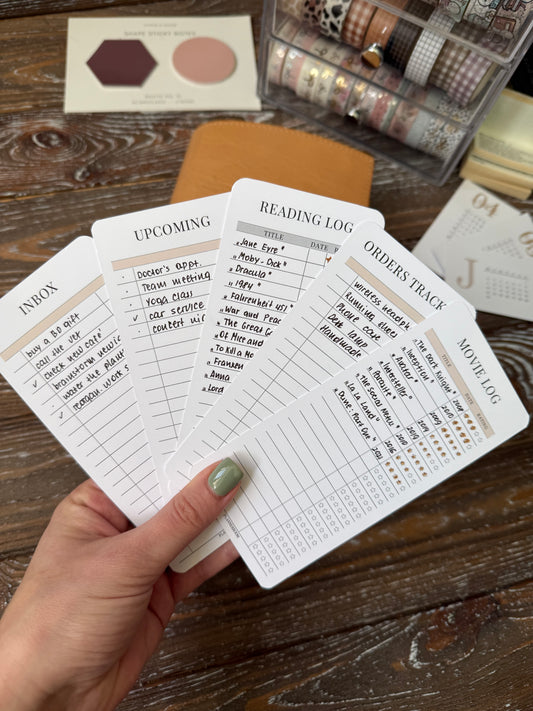 SHAPE STICKY NOTES
INBOX
buy a BD gift
call the vet
check new café
brainstorm new
water the plant
reorgan work s
UPCOMING
Doctor's appt.
Team meeting
Yoga class
car service
concert
READING LOG
TITLE DATE
"Jane Eyre"
"Moby-Dick"
"Dracula"
"1984"
"Fahrenheit 451
"War and Peac
"The Great G
"Of Mice and
"To Kill a M
"Franken
"Anna
"Lord
ORDERS TRACK
wireless headph
running shoes
phone case
Desk lamp
Handmade
MOVIE LOG
TITLE DATE RATING
"The Dark Knight" 2008
"Inception"
"Avatar" 2009
"Interstellar"
"Parasite" 2019
"The Social Menu"
"La La Land" 2016
"Dune: Part One" 2021
04
J